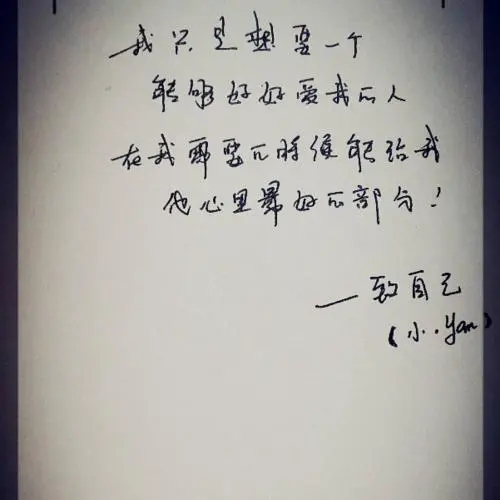 我只是想要一个
能够好好爱我的人
在我需要的时候能给我
他心里最好的部分！
—致自己
(小.Yan)